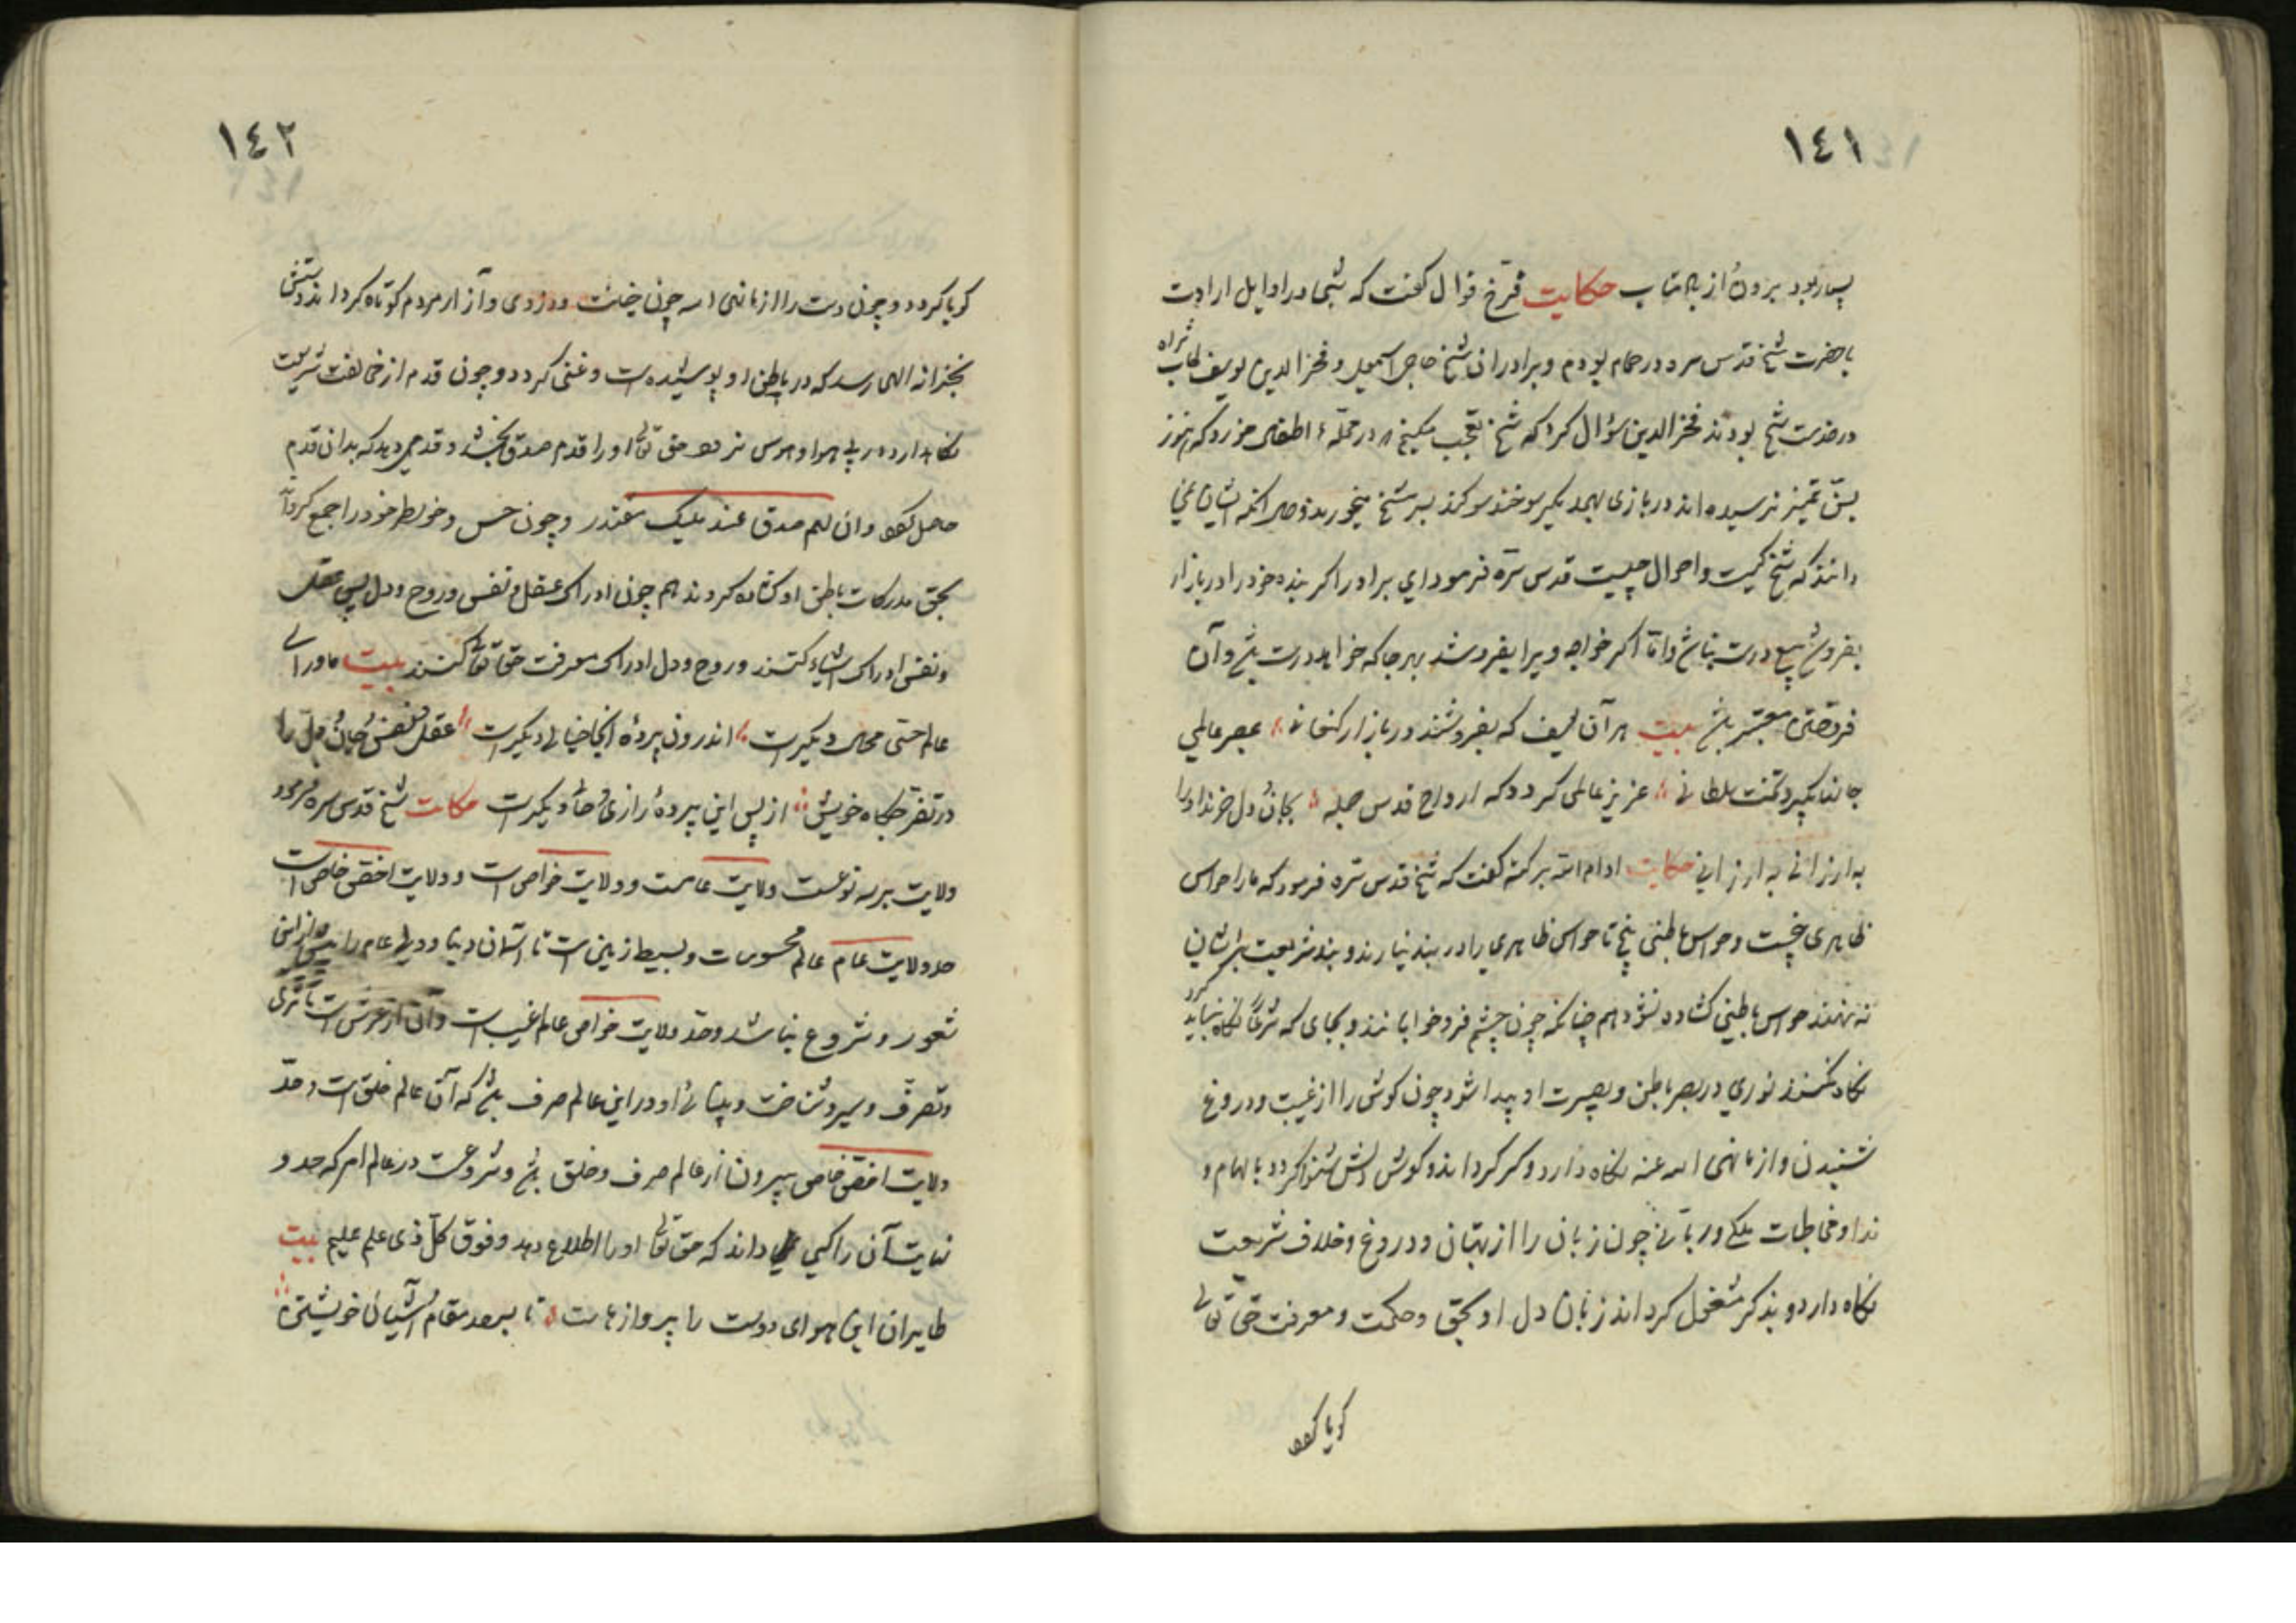 ١٤١
بسیار بود بیرون از حکایت فرخ قوال گفت که شبی در اوایل ارادت
با حضرت شیخ قدس سره در حمام بودم و برادران شیخ حاجی اسمعیل و فخرالدین یوسف
در خدمت شیخ بودند فخرالدین سؤال کرد که شیخ تعجب میکنم در محله اطفال خرد که هنوز
بسن تمیز نرسیده اند در بازی بهمدیگر سوکند بسر شیخ میخورند و حال آنکه ایشان نمی
دانند که شیخ کیست و احوال چیست قدس سره فرمود ای برادر اگر بنده خود را در بازار
بفروشد بیع درست نباشد و اما اگر خواجه ویرا بفروشد بهر جا که خواهد درست باشد و آن
فروختن معتبر باشد بیت هر آن یوسف که بفروشند در بازار کنعانی بمصر عالمی
جانها بگیرد تخت سلطانی عزیز عالمی گردد که ارواح قدس جمله بجان و دل خرند او را
به ارزانی به ارزانی حکایت ادام الله برکته گفت که شیخ قدس سره فرمود که ما را حواس
ظاهری پنجست و حواس باطنی پنج تا حواس ظاهری را در بند نیارند و بند شریعت بر ایشان
ننهند حواس باطنی گشاده نشود همچنانکه چون چشم فرو خوابانند و بجای که شرعا نگاه نباید کرد
نگاه نکنند نوری در بصر باطن و بصیرت او پیدا شود چون گوش را از غیبت و دروغ
شنیدن و از ما نهی الله عنه نگاه دارد و کر گرداند گوش دلش شنوا گردد بالهام و
ندا و مخاطبات ملکی و ربانی چون زبان را از بهتان و دروغ و خلاف شریعت
نگاه دارد و بذکر مشغول گرداند زبان دل او بحق و حکمت و معرفت حق تعالی
کویا کردد
١٤٢
کویا کردد و چون دست را از ما نهی الله چون خیانت و دزدی و آزار مردم کوتاه کرداند دستش
بخزانه الهی رسد که در باطن او پوشیده است و غنی کردد و چون قدم از مخالفت شریعت
نگاه دارد و در پی هوا و هوس نرود حق تعالی او را قدم صدق بخشد و قدمی دهد که بدان قدم
حاصل کردد وان لهم صدق عند ملیک مقتدر و چون حس و خواطر خود را جمع کرد
بحق مدرکات باطن او کشاده کردند هم چون ادراک عقل و نفس و روح و دل پس عقل
و نفس ادراک اشیاء کنند و روح و دل ادراک معرفت حق تعالی کنند بیت ماورای
عالم حسی محالی دیگرست اندرون پرده اینجا خیالی دیگرست عقل و نفس و جان و دل را
در تفرجگاه خویش از پس این پرده رازی و حالی دیگرست حکایت شیخ قدس سره فرمود
ولایت بر سه نوعست ولایت عامست و ولایت خواص است و ولایت اخص خاص است
حد ولایت عام عالم محسوسات و بسیط زمین است تا آسمان دنیا و ولی عام را بیش از این
شعور و شروع نباشد و حد ولایت خواص عالم غیب است و آن از عرش است تا ثری
و تصرف و سیر و شناخت و بینائی او در این عالم صرف باشد که آن عالم خلق است و حد
ولایت اخص خاص بیرون از عالم صرف و خلق باشد و شروعست در عالم امر که حد و
نهایت آن را کسی داند که حق تعالی او را اطلاع دهد وفوق کل ذی علم علیم بیت
طایران این هوای دوست را پروازهاست تا برصد مقام آشیان خویشتن